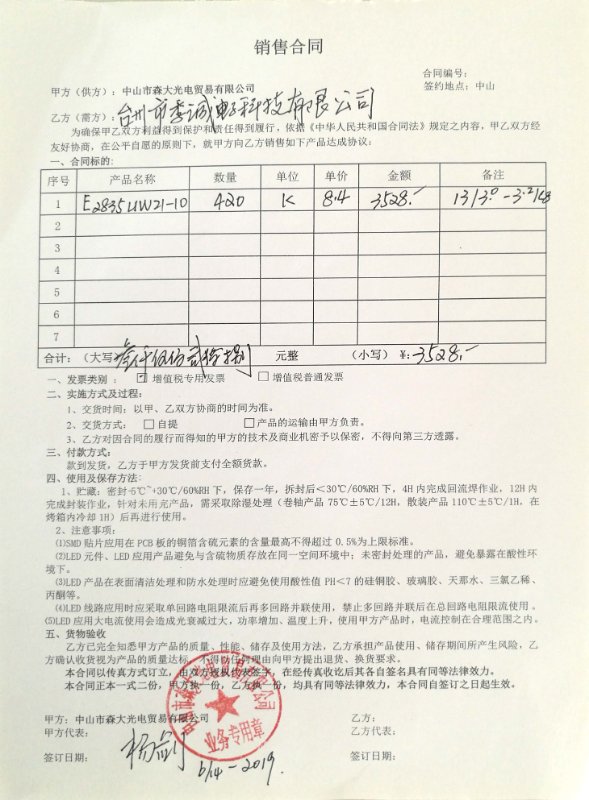 销售合同
合同编号:
甲方（供方）: 中山市森大光电贸易有限公司 签约地点: 中山
乙方（需方）: 台州市季诚电子科技有限公司
为确保甲乙双方利益得到保护和责任得到履行，依据《中华人民共和国合同法》规定之内容，甲乙双方经
友好协商，在公平自愿的原则下，就甲方向乙方销售如下产品达成协议:
一、合同标的:
序号 产品名称 数量 单位 单价 金额 备注
1 E2835UW21-10 420 K 8.4 3528.-
2
3
4
5
6
7
合计:（大写 叁仟伍佰贰拾捌 元整 （小写） ¥:3528.-
一、发票类别 : 增值税专用发票 增值税普通发票
二、实施方式及过程:
1、交货时间: 以甲、乙双方协商的时间为准。
2、交货方式: 自提 产品的运输由甲方负责。
3、乙方对因合同的履行而得知的甲方的技术及商业机密予以保密，不得向第三方透露。
三、付款方式:
款到发货，乙方于甲方发货前支付全额货款。
四、使用及保存方法:
1、贮藏: 密封-5℃~+30℃/60%RH 下，保存一年，拆封后＜30℃/60%RH 下，4H 内完成回流焊作业，12H 内
完成封装作业，针对未用完产品，需采取除湿处理（卷轴产品 75℃±5℃/12H，散装产品 110℃±5℃/1H，在
烤箱内冷却 1H）后再进行使用。
2、注意事项:
⑴SMD 贴片应用在 PCB 板的铜箔含硫元素的含量最高不得超过 0.5%为上限标准。
⑵LED 元件、LED 应用产品避免与含硫物质存放在同一空间环境中; 未密封处理的产品，避免暴露在酸性环
境下。
⑶LED 产品在表面清洁处理和防水处理时应避免使用酸性值 PH＜7 的硅铜胶、玻璃胶、天那水、三氯乙稀、
丙酮等。
⑷LED 线路应用时应采取单回路电阻限流后再多回路并联使用，禁止多回路并联后在总回路电阻限流使用。
⑸LED 应用大电流使用会造成光衰减过大，功率增加、温度上升，使用甲方产品时，电流控制在合理范围之内。
五、货物验收
乙方已完全知悉甲方产品的质量、性能、储存及使用方法，乙方承担产品使用、储存期间所产生风险，乙
方确认收货视为产品的质量达标，不得以任何理由向甲方提出退货、换货要求。
本合同以传真方式订立，由双方授权代表签字，在经传真收讫后其各自签名具有同等法律效力。
本合同正本一式二份，甲方执一份，乙方执一份，均具有同等法律效力。本合同自签订之日起生效。
甲方: 中山市森大光电贸易有限公司 乙方:
甲方代表: 乙方代表:
签订日期: 6/4-2019. 签订日期:
业务专用章